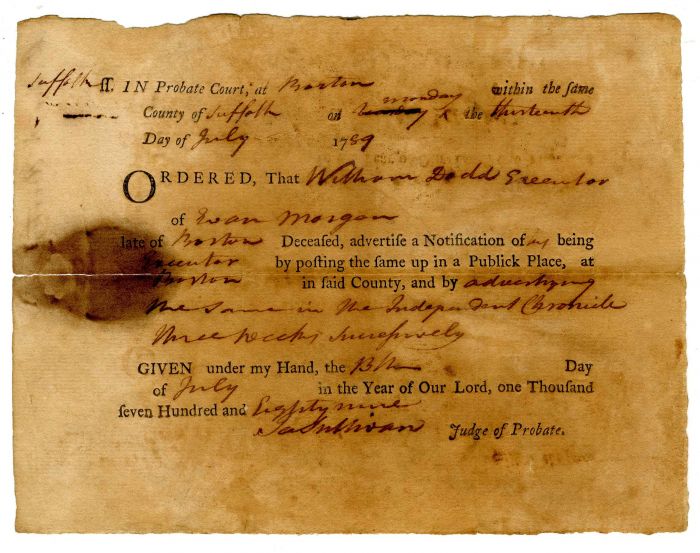 Suffolk ſſ. IN Probate Court, at Boston within the ſame
County of Suffolk on monday the thirteenth
Day of July 1789
ORDERED, That William Dodd Executor
of Evan Morgan
late of Boston Deceaſed, advertiſe a Notification of his being
Executor by poſting the ſame up in a Publick Place, at
Boston in ſaid County, and by advertising
the same in the Independent Chronicle
three weeks Successively
GIVEN under my Hand, the 13th Day
of July in the Year of Our Lord, one Thouſand
ſeven Hundred and Eighty nine
Ja Sullivan Judge of Probate.